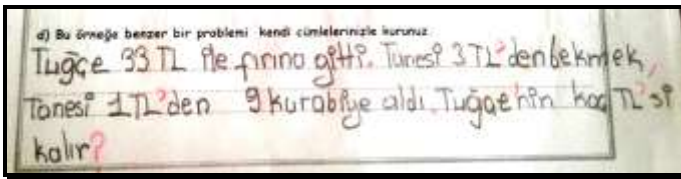 d) Bu örneğe benzer bir problemi kendi cümlelerinizle kurunuz.
Tuğçe 33 TL ile fırına gitti. Tanesi 3 TL'den 6 ekmek,
Tanesi 1TL'den 9 kurabiye aldı. Tuğçe'nin kaç TL'si
kalır?